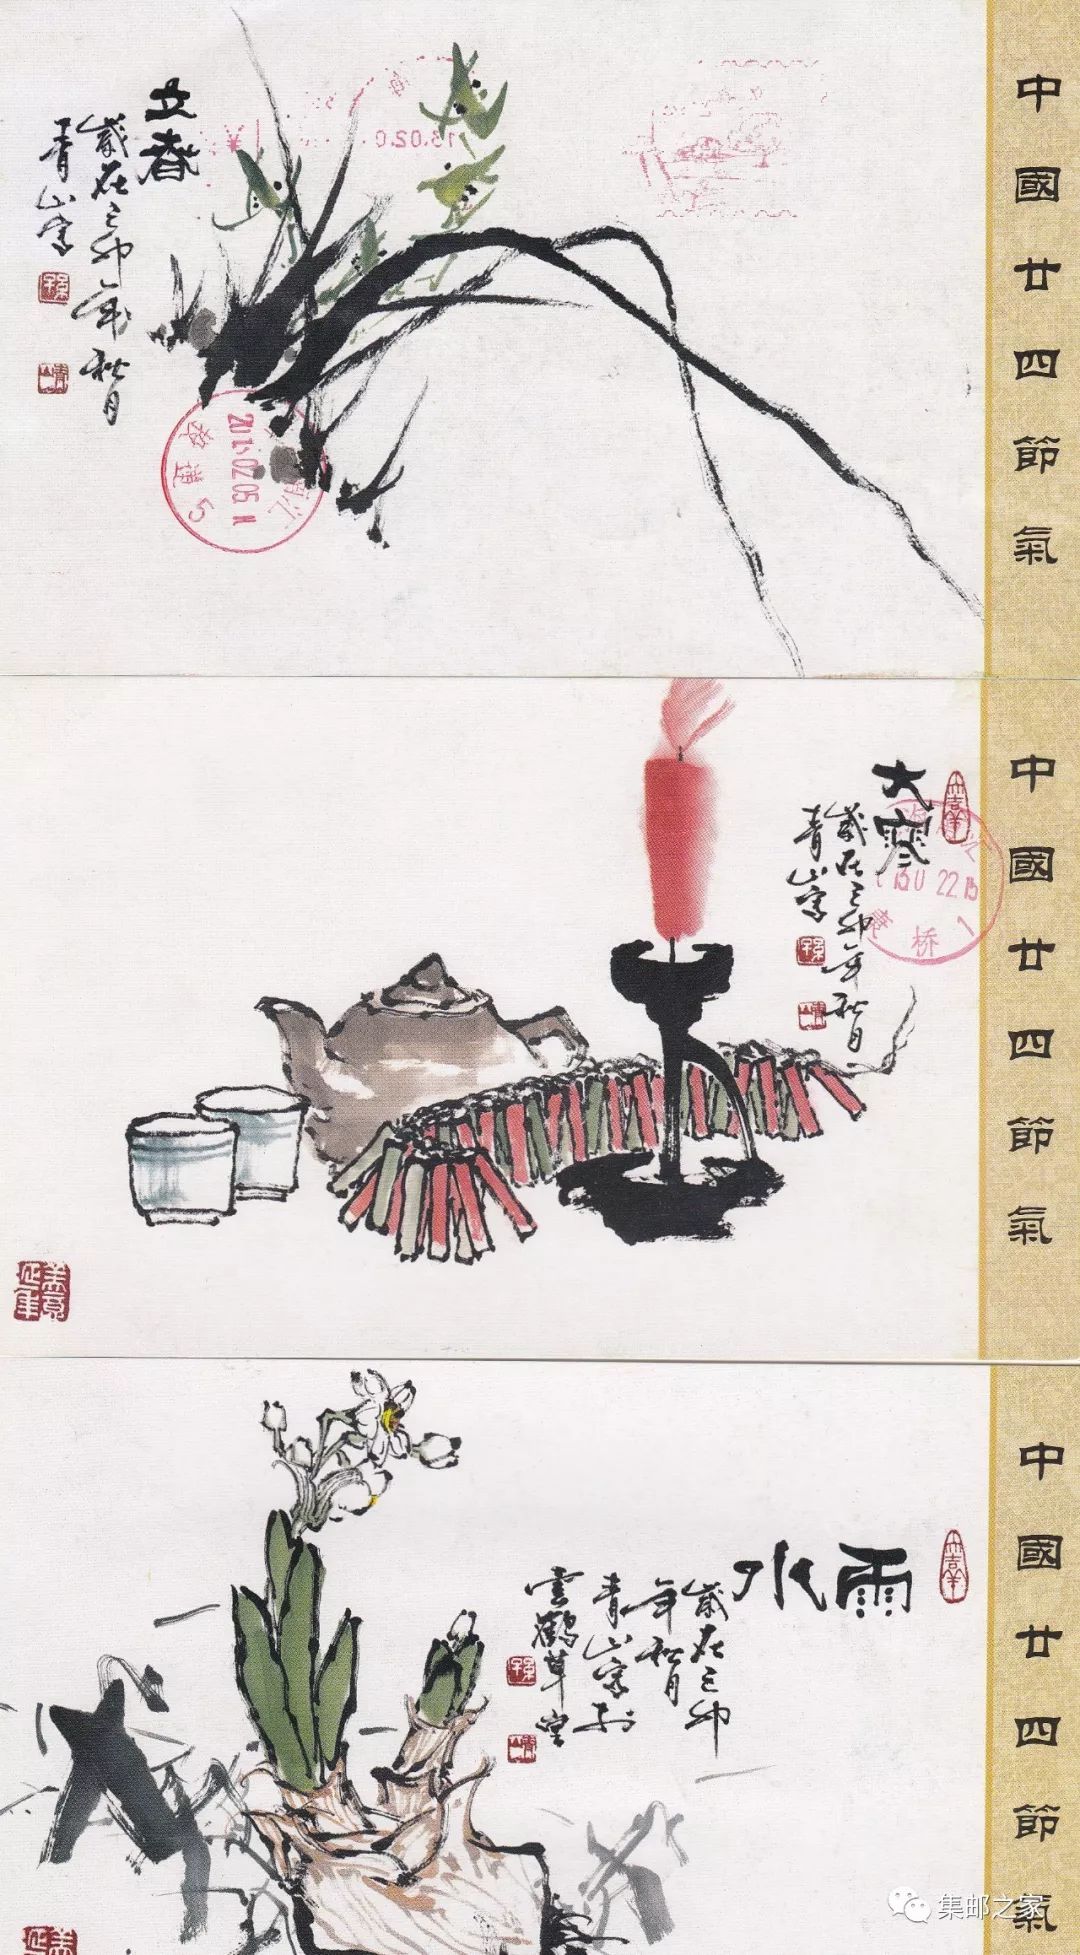 中國廿四節氣
立春
歲在己卯年秋月
青山寫
13.02.0
2013.02.05
5
中國廿四節氣
大寒
歲在己卯年秋月
青山寫
22 15
桥
1
中國廿四節氣
雨水
歲在己卯
年秋月
青山寫於
雲鶴草堂
集邮之家